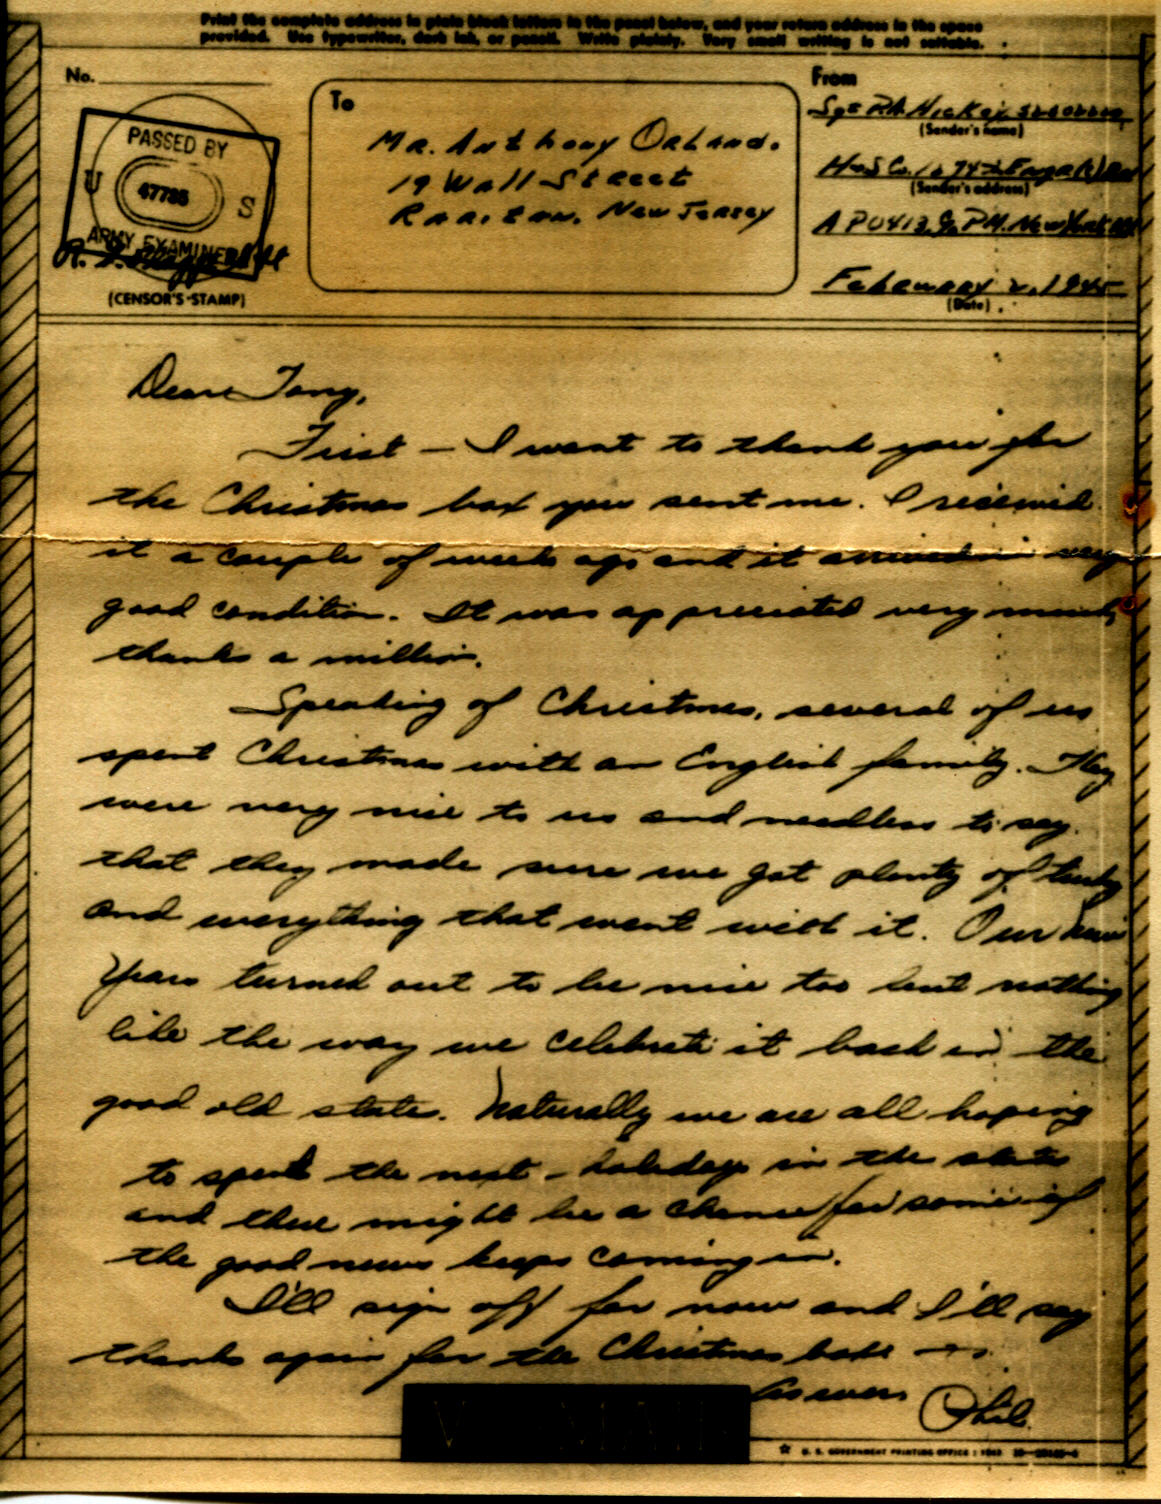 Print the complete address in plain block letters in the panel below, and your return address in the space
provided. Use typewriter, dark ink, or pencil. Write plainly. Very small writing is not suitable.
No.
PASSED BY
U 47785 S
ARMY EXAMINER
(CENSOR'S STAMP)
To
Mr. Anthony Orlando.
19 Wall Street
Raritan, New Jersey
From
Sgt P.A. Hickey
(Sender's name)
(Sender's address)
APO 413, % PM. New York
February 2, 1945
(Date)
Dear Tony,
First – I want to thank you for
the Christmas box you sent me. I received
it a couple of weeks ago and it arrived in very
good condition. It was appreciated very much,
thanks a million.
Speaking of Christmas, several of us
spent Christmas with an English family. They
were very nice to us and needless to say
that they made sure we got plenty of turkey
and everything that went with it. Our New
Years turned out to be nice too but nothing
like the way we celebrate it back in the
good old states. Naturally we are all hoping
to spend the next – holidays in the states
and there might be a chance for some if
the good news keeps coming in.
I'll sign off for now and I'll say
thanks again for the Christmas box —
As ever,
Phil
V-MAIL
U. S. GOVERNMENT PRINTING OFFICE : 1943